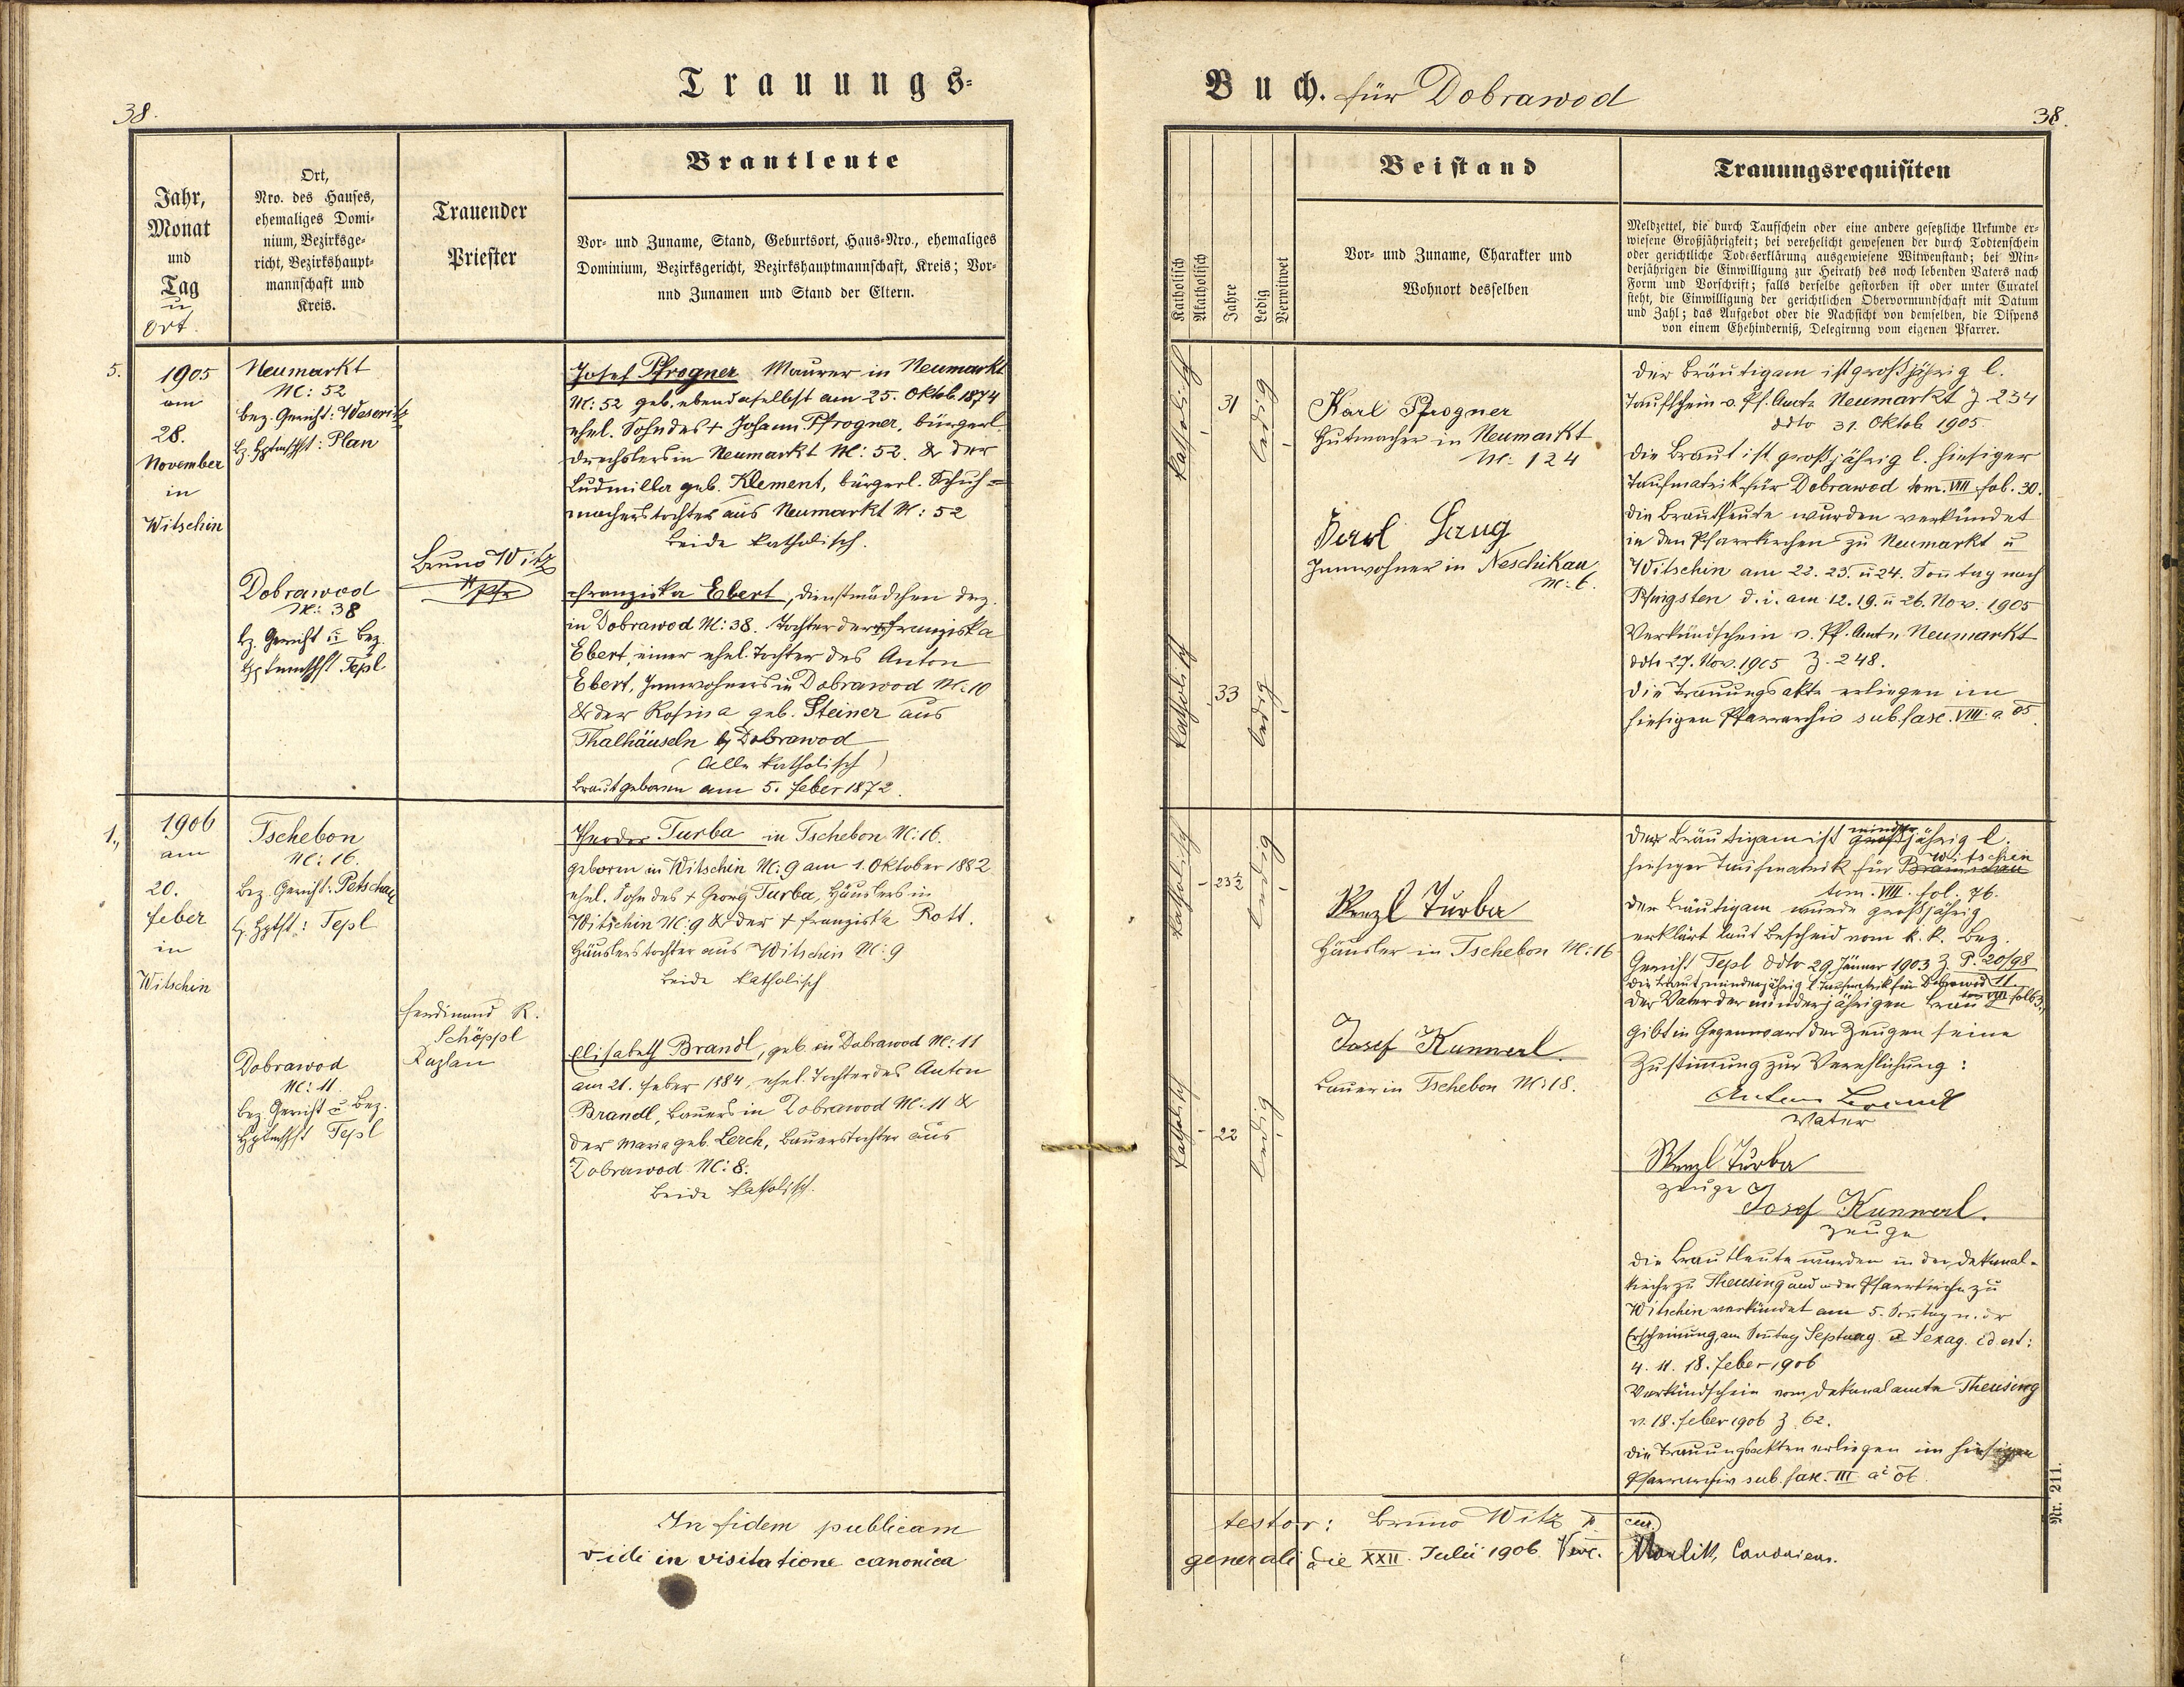 38.
Trauungs-
Jahr,
Monat
und
Tag
u
Ort.
Ort,
Nro. des Hauses,
ehemaliges Domi-
nium, Bezirksge-
richt, Bezirkshaupt-
mannschaft und
Kreis.
Trauender
Priester
Brautleute
Vor- und Zuname, Stand, Geburtsort, Haus-Nro., ehemaliges
Dominium, Bezirksgericht, Bezirkshauptmannschaft, Kreis; Vor-
und Zunamen und Stand der Eltern.
5.
1905
am
28.
November
in
Witschin
Neumarkt
N: 52
bez. Gericht: Weseritz
bz. Hptmschft: Plan
Dobrawod
N: 38
bz. Gericht u bez.
Hptmschft Tepl
Bruno Witz
Pfr
Josef Pfrogner Maurer in Neumarkt
N: 52 geb. ebendaselbst am 25. Oktob. 1874
ehel. Sohn des + Johann Pfrogner, bürgerl.
Drechslers in Neumarkt N: 52. & der
Ludmilla geb. Klement, bürgerl. Schuh=
macherstochter aus Neumarkt N: 52
beide katholisch.
Franziska Ebert, Dienstmädchen drz.
in Dobrawod N: 38. Tochter der + Franziska
Ebert, einer ehel. Tochter des Anton
Ebert, Innwohners in Dobrawod N: 10
& der Rosina geb. Steiner aus
Thalhäuseln bz Dobrawod
(Alle katholisch)
Braut geboren am 5. Feber 1872.
1.,
1906
am
20.
Feber
in
Witschin
Tschebon
N: 16.
Bez. Gericht: Petschau
bz. Hptft: Tepl
Dobrawod
N: 11.
bez. Gericht u bez.
Hptmschft Tepl
Ferdinand R.
Schöppl
Kaplan
Theodor Turba in Tschebon N: 16.
geboren in Witschin N: 9 am 1. Oktober 1882
ehel. Sohn des + Georg Turba, Häuslers in
Witschin N: 9 & der + Franziska Rott.
Häuslerstochter aus Witschin N: 9
beide katholisch
Elisabeth Brandl, geb. in Dobrawod N: 11
am 21. Feber 1884, ehel. Tochter des Anton
Brandl, Bauers in Dobrawod N: 11 &
der Maria geb. Lerch, Bauerstochter aus
Dobrawod N: 8.
beide katholisch.
In fidem publicam
vidi in visitatione canonica
Buch. für Dobrawod
38.
Katholisch
Akatholisch
Jahre
Ledig
Verwitwet
Beistand
Vor- und Zuname, Charakter und
Wohnort desselben
Trauungsrequisiten
Meldzettel, die durch Taufschein oder eine andere gesetzliche Urkunde er-
wiesene Großjährigkeit; bei verehelicht gewesenen der durch Todtenschein
oder gerichtliche Todeserklärung ausgewiesene Witwenstand; bei Min-
derjährigen die Einwilligung zur Heirath des noch lebenden Vaters nach
Form und Vorschrift; falls derselbe gestorben ist oder unter Curatel
steht, die Einwilligung der gerichtlichen Obervormundschaft mit Datum
und Zahl; das Aufgebot oder die Nachsicht von demselben, die Dispens
von einem Ehehinderniß, Delegirung vom eigenen Pfarrer.
katholisch
31
ledig
katholisch
33
ledig
Karl Pfrogner
Hutmacher in Neumarkt
N: 124
Karl
Innwohner in Neschikau
N: 6.
Der Bräutigam ist großjährig l.
Taufschein v. Pf. Amte Neumarkt Z 234
ddto 31. Oktob 1905.
Die Braut ist großjährig l. hiesiger
Taufmatrik für Dobrawod tom. VIII fol. 30.
Die Brautleute wurden verkündet
in den Pfarrkirchen zu Neumarkt u
Witschin am 22. 23. u 24. Sontag nach
Pfingsten d. i. am 12. 19. u 26. Nov. 1905
Verkündschein v. Pf. Amte Neumarkt
ddto 27. Nov. 1905 Z. 248.
Die Trauungsakte erliegen im
hiesigen Pfarrarchiv sub. fasc. VIII. a. 05.
katholisch
23½
ledig
katholisch
22
ledig
Wenzl Turba
Häusler in Tschebon N: 16
Josef Kunnerl.
Bauer in Tschebon N: 18.
Der Bräutigam ist großjährig l. minder
hiesiger Taufmatrik für Witschin
tom. VIII. fol. 76.
Der Bräutigam wurde großjährig
erklärt laut Bescheid vom k. k. Bez.
Gericht Tepl ddto 29 Jänner 1903 Z. P. 20/98
Die Braut minderjährig l. Taufmatrik für Dobrawod 11
tom VIII fol 63.
Der Vater der minderjährigen Braut
gibt in Gegenwart der Zeugen seine
Zustimmung zur Verehlichung:
Anton Brandl
Vater
Wenzl Turba
Zeuge
Josef Kunnerl.
Zeuge
Die Brautleute wurden in der Dekanal-
kirche zu Theusing und in der Pfarrkirche zu
Witschin verkündet am 5. Sontag n. dr
Erscheinung, am Sontag Septuag. u Sexag. id est:
4. 11. 18. Feber 1906
Verkündschein vom Dekanalamte Theusing
v. 18. Feber 1906 Z. 62.
Die Trauungsakten erliegen im hiesigen
Pfarrarchiv sub. fasc. III ai 06.
testor: Bruno Witz cur.
generali die XXII. Julii 1906. Canonicus.
Nr. 211.